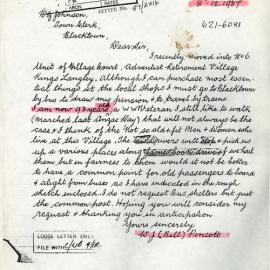 RATES
LETTER No. 87/2816
8-12.1987
Mr Johnson,
Town Clerk,
Blacktown
621-6081
Dear Sir,
I recently moved into No 6
Unit of Village Court, Adventist Retirement Village
Kings Langley, Although I can purchase most essen-
tial things at the local shops I must go to Blacktown
by bus to draw my pension & to travel by train
I am now 93 years old, a WW1 Veteran I still like to walk
(marched last Anzac Day) that will not always be the
case & I think of the Not so old & fit Men & Women who
live at this Village. The drivers will stop & pick us
up, at various places along if we hail
them, but in fairness to them would it not be better
to have a common point for old passengers to board
& alight from buses as I have indicated in the rough
sketch enclosed. I do not request Bus shelter but just
the common post. Hoping you will consider my
request & thanking you in anticipation
Yours sincerely
W J (Bill) Pincott
LOOSE LETTER ONLY
FILE WITH